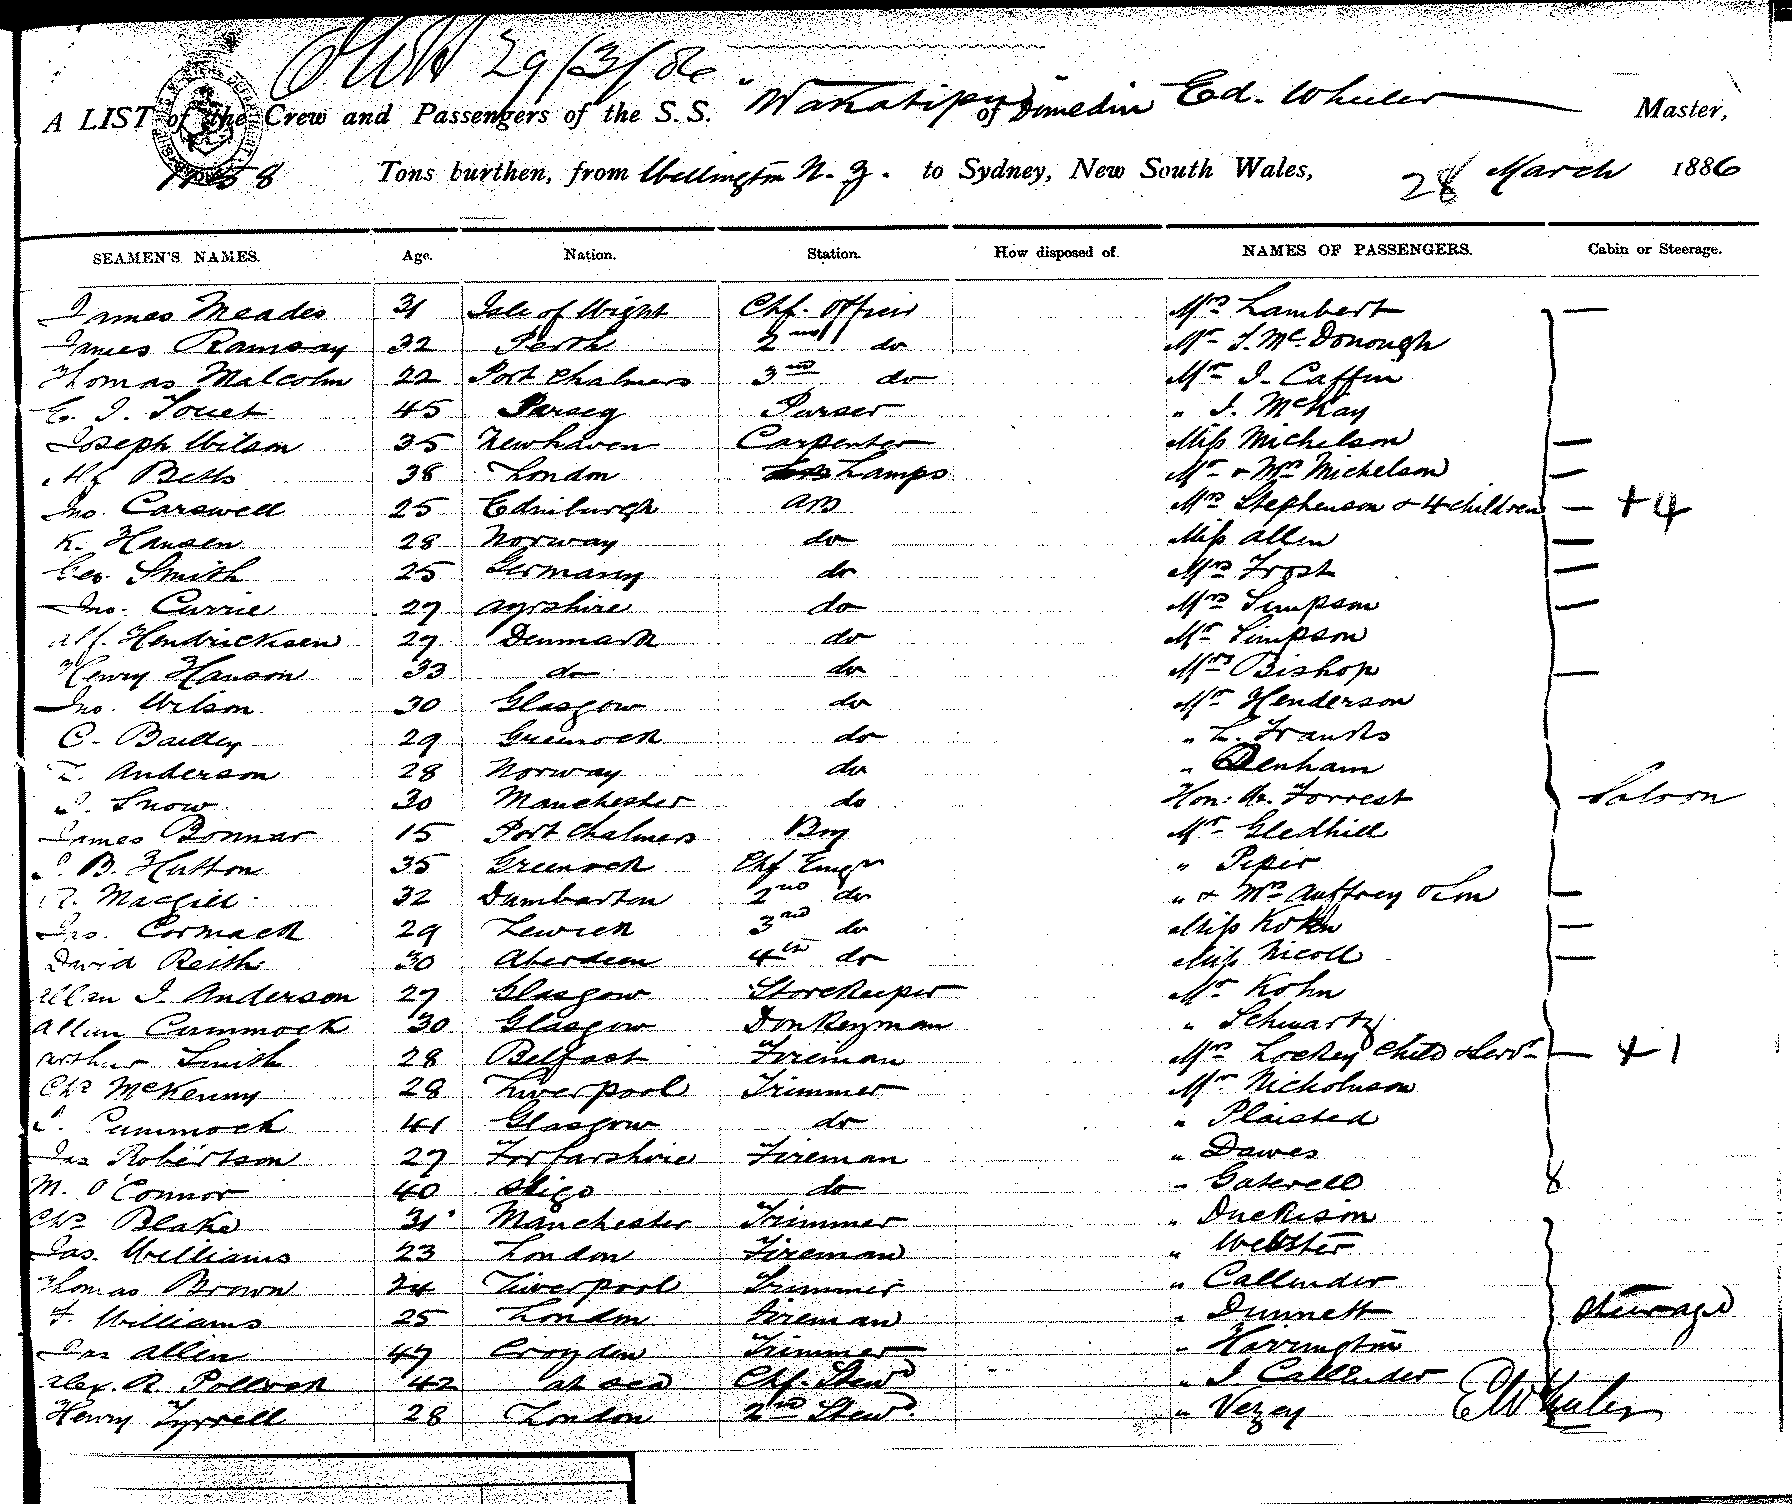 29/3/86
A LIST of the Crew and Passengers of the S.S. "Wakatipu" of Dunedin Ed. Wheeler Master,
Tons burthen, from Wellington N.Z. to Sydney, New South Wales, 28 March 1886
SEAMEN'S NAMES. Age. Nation. Station. How disposed of. NAMES OF PASSENGERS. Cabin or Steerage.
James Meades 31 Isle of Wight Chf. Officer Mrs Lambert —
James Ramsay 32 Perth 2nd do Mr J. McDonough
Thomas Malcolm 22 Port Chalmers 3rd do Mr J. Caffin
45 Purser " J. McKay
Joseph Wilson 35 Newhaven Carpenter Miss Michelson —
Betts 38 London Lamps Mr & Mrs Michelson —
Jno. Carswell 25 Edinburgh AB Mrs Stephenson & 4 children — +4
K. Hansen 28 Norway do Miss Allen —
Geo. Smith 25 Germany do Mrs Frost —
Jno. Currie 27 Ayrshire do Mrs Simpson —
Alf. Hendricksen 27 Denmark do Mr Simpson
Henry Hanson 33 do do Mrs Bishop —
Jno. Wilson 30 Glasgow do Mr Henderson
C. Bailey 29 Greenock do " L. Franks
Anderson 28 Norway do " Denham
Snow 30 Manchester do Hon: Forrest Saloon
James Bonnar 15 Port Chalmers Boy Mr Gledhill
B. Hutton 35 Greenock Chf Engr " Piper
Macgill 32 Dumbarton 2nd do " & Mrs Auffrey & Son —
Cormack 29 Lewick 3rd do Miss Kohn —
David Reith 30 Aberdeen 4th do Miss Nicoll —
Allan J. Anderson 27 Glasgow Storekeeper Mr Kohn
Allan Cummock 30 Glasgow Donkeyman " Schwartz
Arthur Smith 28 Belfast Fireman Mrs Lockey Child & Servt — +1
Chs McKenny 28 Liverpool Trimmer Mr Nicholnson
Cummock 41 Glasgow do " Plaisted
Jas Robertson 27 Forfarshire Fireman " Dawes
M. O'Connor 40 Sligo do " Gaterell 8
Chs Blake 31 Manchester Trimmer " Duckison
Jas. Williams 23 London Fireman " Webster
Thomas Brown 24 Liverpool Trimmer " Callender
F. Williams 25 London Fireman " Dunnett Steerage
Jas Allen 47 Croyden Trimmer " Harrington
Alex. R. Pollock 42 at sea Chf. Stewd " J Callender
Henry Tyrrell 28 London 2nd Stewd. " Vezey EWheeler